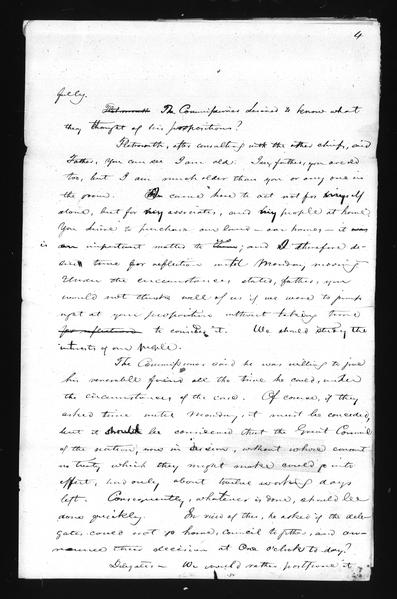 4
fully.
The Commissioner desired to know what
they thought of his propositions?
Flatmouth, after consulting with the other chiefs, said
Father, You can see I am old. I say, father, you are old
too, but I am much older than you or any one in
the room. came here to act not for myself
alone, but for my associates, and my people at home.
You desire to purchase our land – our homes – it
is an important matter to ; and I therefore de-
sire time for reflection until Monday, morning
Under the circumstances stated, father, you
would not think well of us if we were to jump
up at your proposition without taking time
for reflection to consider it. We should study the
interests of our people.
The Commissioner, said he was willing to give
his venerable friend all the time he could, under
the circumstances, of the case. Of course, if they
asked time until Monday, it must be conceded,
but it should be considered that the Great Council
of the nation, now in session, without whose consent
no treaty which they might make could go into
effort, had only about twelve working days
left. Consequently, whatever is done, should be
done quickly. In view of this, he asked if the dele-
gates could not go home, council together, and an-
nounce their decision at One o'clock to-day?
Delegates – We would rather postpone it